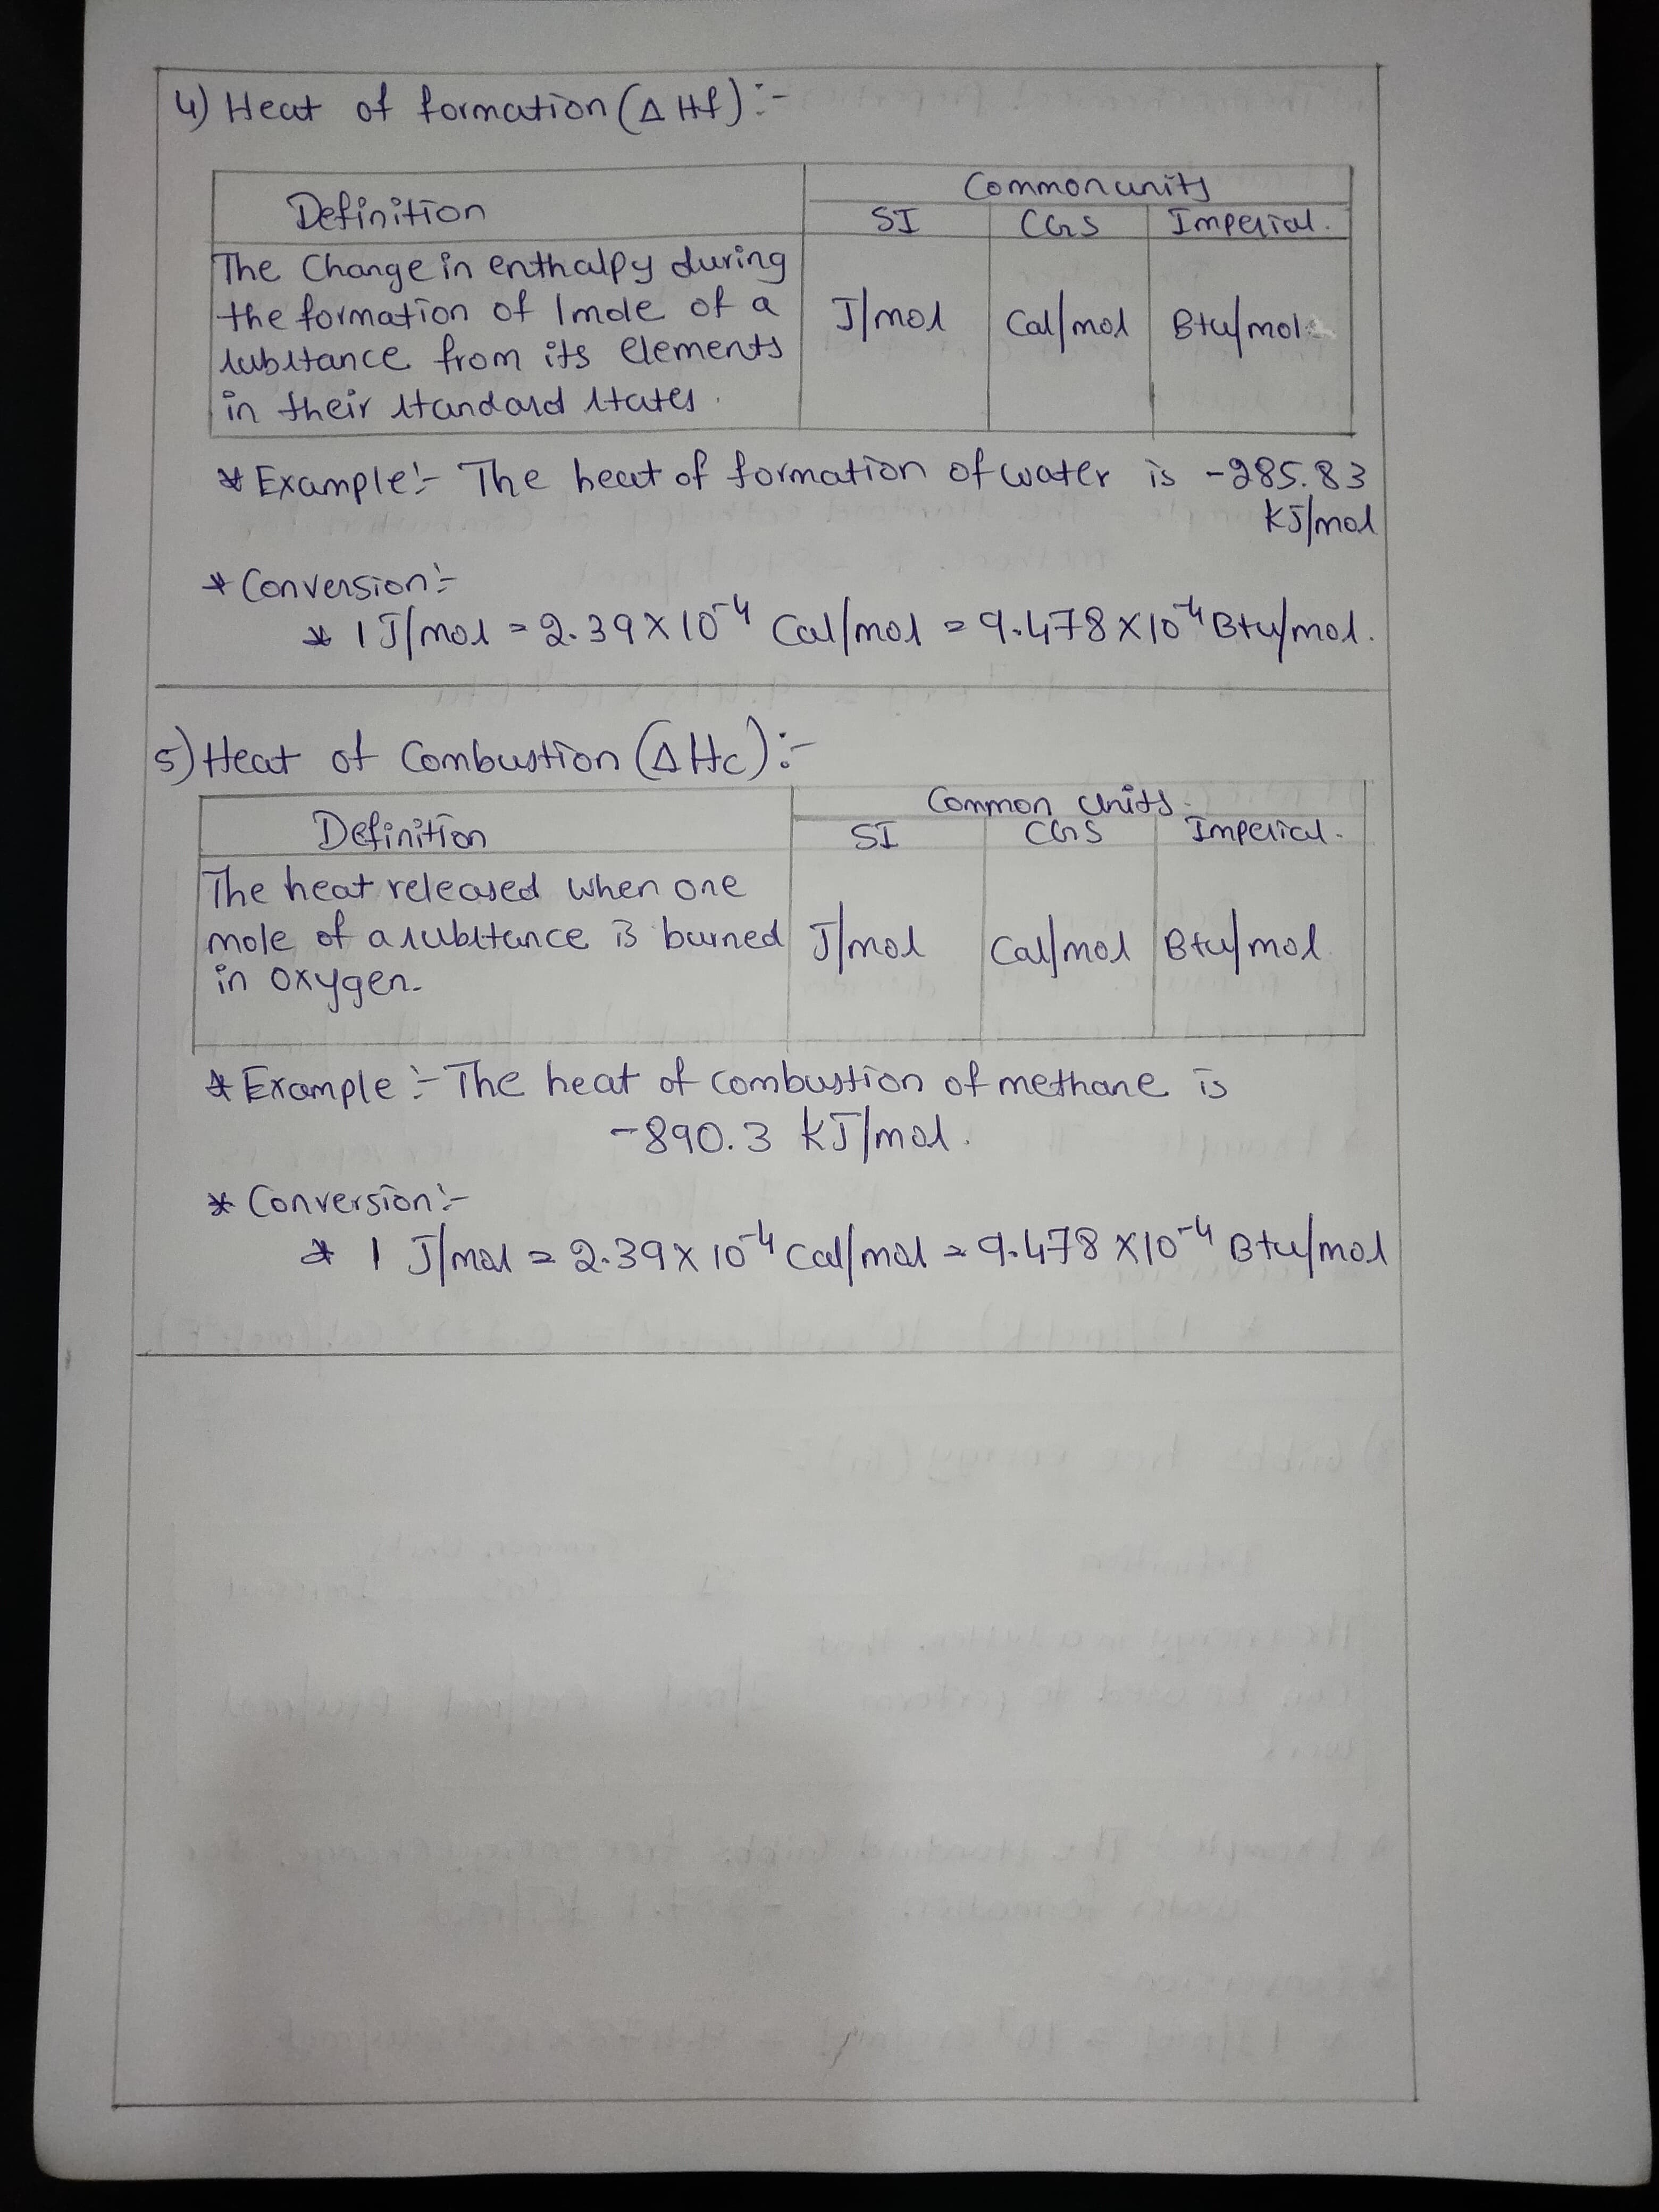 4) Heat of formation (Δ Hf) :-
Definition
Common units
SI
CGS
Imperial.
The Change in enthalpy during
the formation of 1 mole of a
substance from its elements
in their standard states.
J/mol
Cal/mol
Btu/mol
* Example :- The heat of formation of water is -285.83
kJ/mol
* Conversion :-
* 1 J/mol = 2.39 X 10⁻⁴ Cal/mol = 9.478 X 10⁻⁴ Btu/mol.
5) Heat of Combustion (Δ Hc) :-
Definition
Common units.
SI
CGS
Imperial.
The heat released when one
mole of a substance is burned
in oxygen.
J/mol
Cal/mol
Btu/mol
* Example :- The heat of combustion of methane is
-890.3 kJ/mol.
* Conversion :-
* 1 J/mol = 2.39 X 10⁻⁴ Cal/mol = 9.478 X 10⁻⁴ Btu/mol